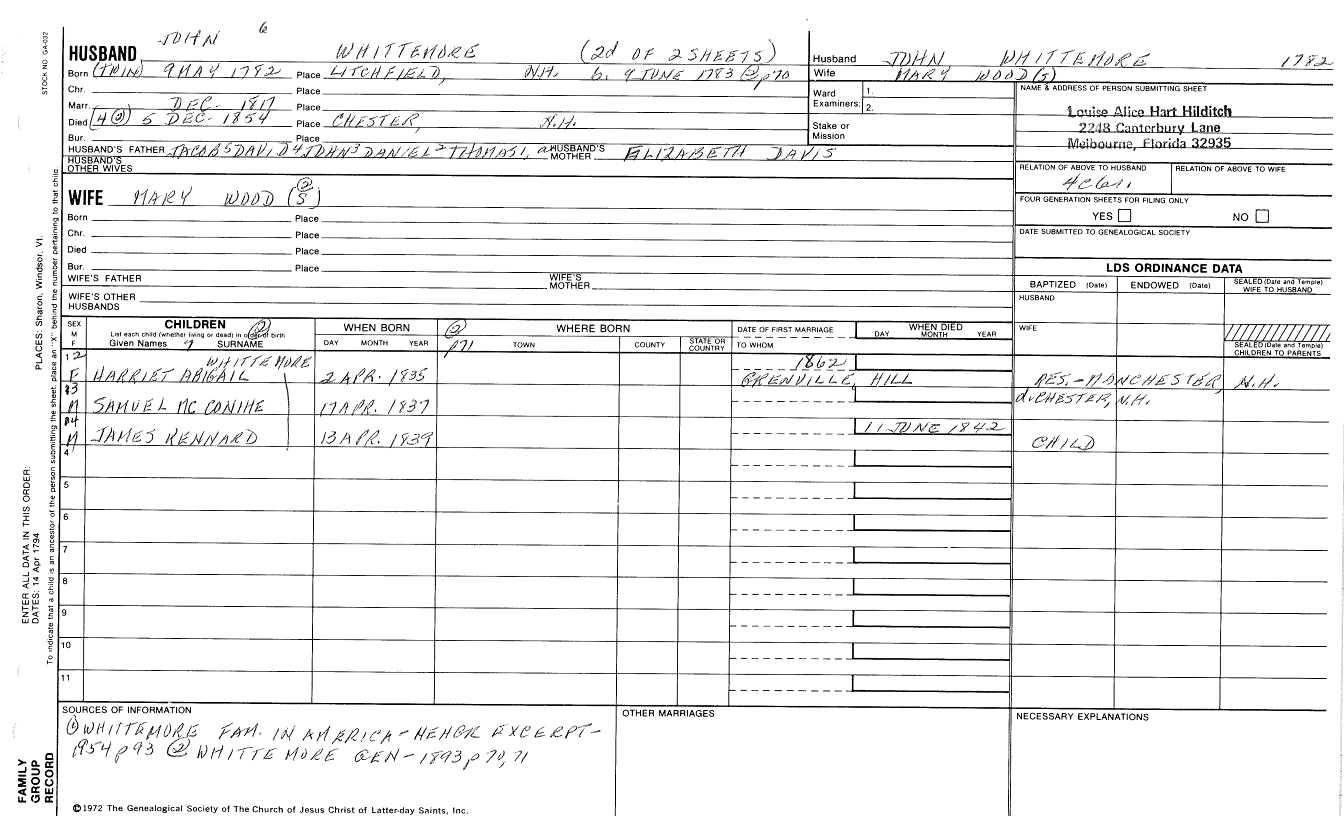 STOCK NO. GA-032
HUSBAND JOHN 6 WHITTEMORE (2d OF 2 SHEETS)
Born (TWIN) 9 MAY 1782 Place LITCHFIELD, N.H. b. 9 JUNE 1783 ② p70
Chr. Place
Marr. DEC. 1817 Place
Died 4② 5 DEC. 1854 Place CHESTER, N.H.
Bur. Place
HUSBAND'S FATHER JACOB5 DAVID4 JOHN3 DANIEL2 THOMAS1, HUSBAND'S MOTHER ELIZABETH DAVIS
HUSBAND'S OTHER WIVES
WIFE MARY WOOD (S) ②
Born Place
Chr. Place
Died Place
Bur. Place
WIFE'S FATHER WIFE'S MOTHER
WIFE'S OTHER HUSBANDS
Husband JOHN WHITTEMORE 1782
Wife MARY WOOD(S)
Ward Examiners: 1. 2.
Stake or Mission
NAME & ADDRESS OF PERSON SUBMITTING SHEET
Louise Alice Hart Hilditch
2248 Canterbury Lane
Melbourne, Florida 32935
RELATION OF ABOVE TO HUSBAND RELATION OF ABOVE TO WIFE
FOUR GENERATION SHEETS FOR FILING ONLY
YES NO
DATE SUBMITTED TO GENEALOGICAL SOCIETY
LDS ORDINANCE DATA
BAPTIZED (Date) ENDOWED (Date) SEALED (Date and Temple) WIFE TO HUSBAND
HUSBAND
WIFE
SEALED (Date and Temple) CHILDREN TO PARENTS
SEX M F CHILDREN ② WHEN BORN ② p71 WHERE BORN DATE OF FIRST MARRIAGE WHEN DIED
List each child (whether living or dead) in order of birth
Given Names 7 SURNAME DAY MONTH YEAR TOWN COUNTY STATE OR COUNTRY TO WHOM DAY MONTH YEAR
12 WHITTEMORE 1862
F HARRIET ABIGAIL 2 APR. 1835 GRENVILLE HILL RES. - MANCHESTER, N.H.
13 d. CHESTER, N.H.
M SAMUEL MC CONIHE 17 APR. 1837
14 11 JUNE 1842
M JAMES KENNARD 13 APR. 1839 CHILD
4
5
6
7
8
9
10
11
SOURCES OF INFORMATION
① WHITTEMORE FAM. IN AMERICA - HEHGR EXCERPT -
1954 p93 ② WHITTEMORE GEN - 1893 p70,71
OTHER MARRIAGES
NECESSARY EXPLANATIONS
©1972 The Genealogical Society of The Church of Jesus Christ of Latter-day Saints, Inc.
PLACES: Sharon, Windsor, Vt.
To indicate that a child is an ancestor of the person submitting the sheet, place an "X" behind the number pertaining to that child
ENTER ALL DATA IN THIS ORDER:
DATES: 14 Apr 1794
FAMILY
GROUP
RECORD